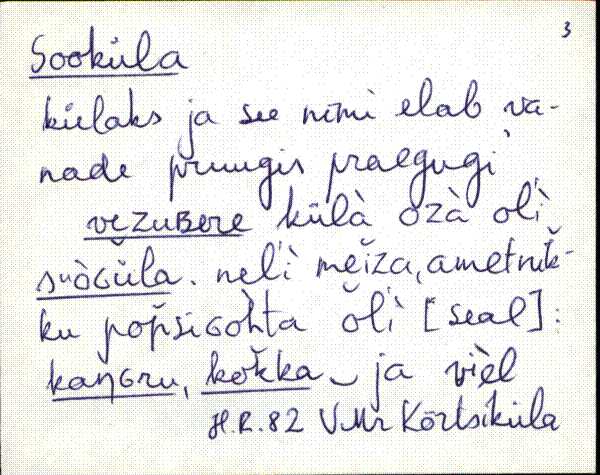 3
Sooküla
külaks ja see nimi elab va-
nade pruugis praegugi
vezuBere külà ozà ol'ì
suòGüla. nel'ì meiza, ametnik-
ku popsiGohta ol'ì [seal]:
kaŋGru, kokka ja vièl
H.R. 82 VMr Körtsiküla